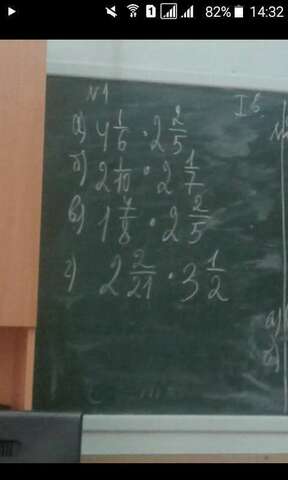 82% 14:32
№1
I в.
а) 4 1/6 · 2 2/5
б) 2 1/10 · 2 1/7
в) 1 7/8 · 2 2/5
г) 2 2/21 · 3 1/2
а)
б)